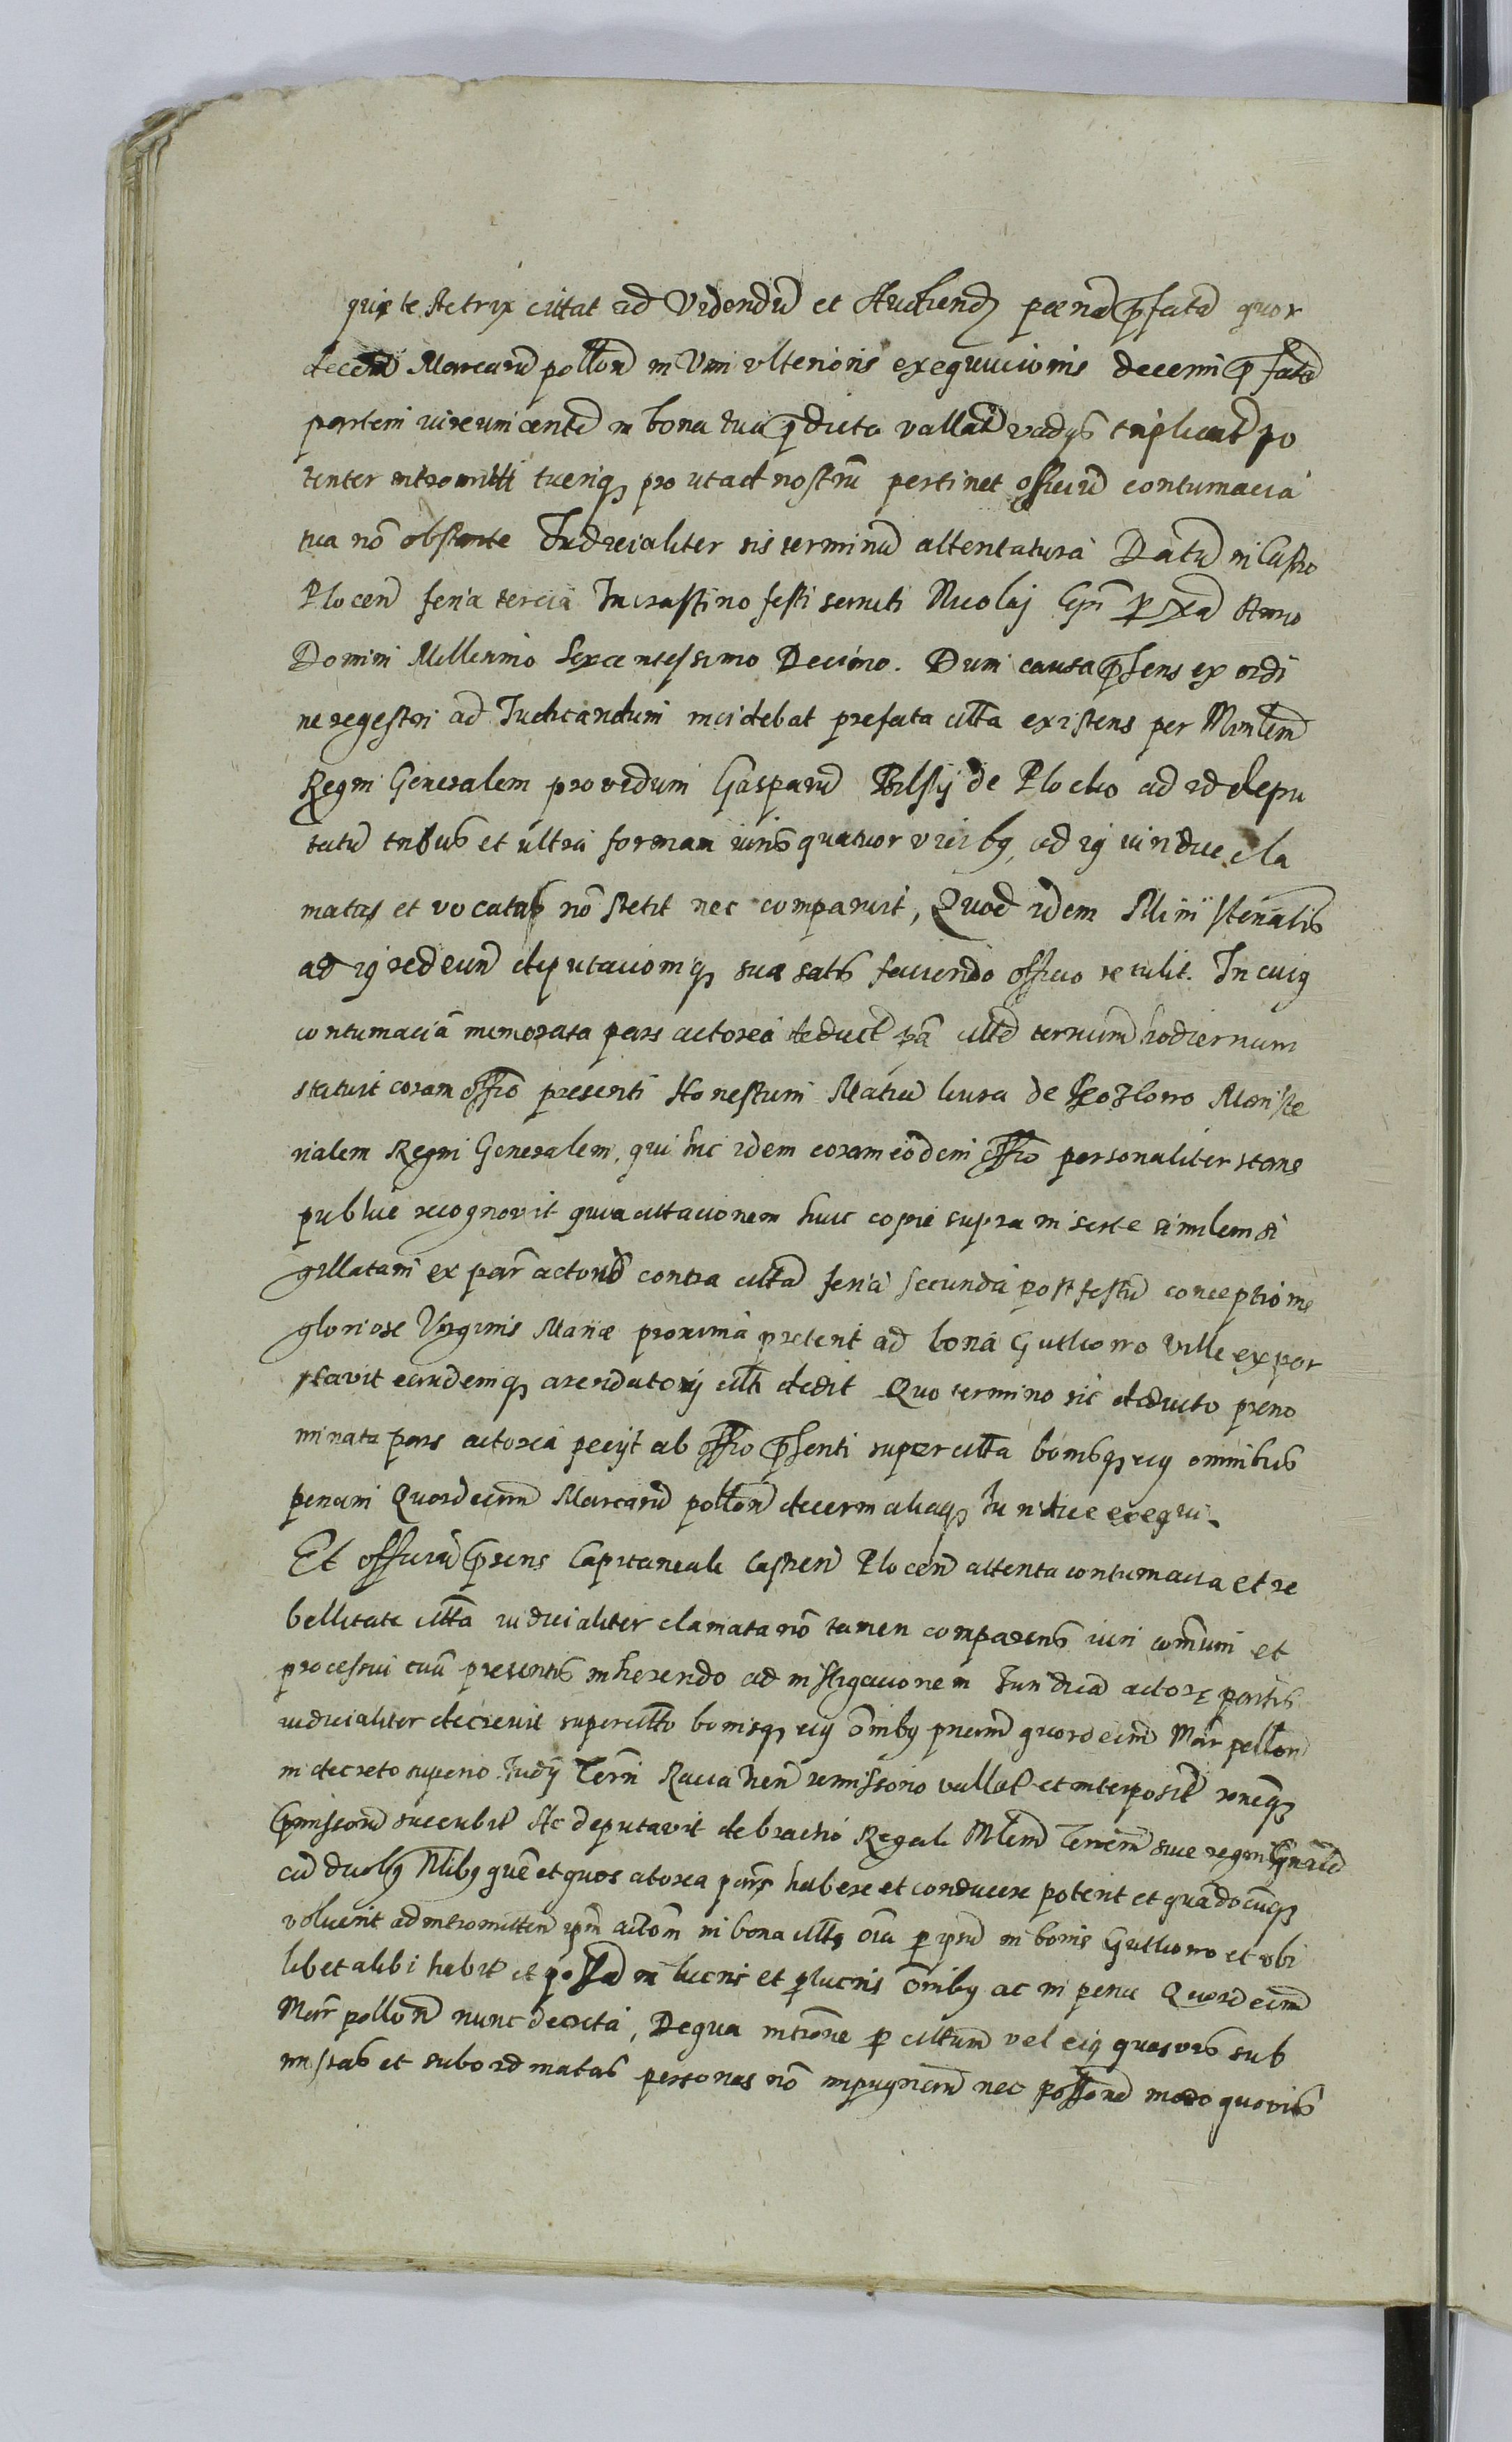 quia te Actrix cittat ad Videndū et Audiend poenā pfatā quor
decem Marcarū pollon in Vim ulterioris exequucionis decerni pfatā
partem iure vincentē in bona tua pdicta vallat vadijs triplicat po
tenter intromitti tuerique pro ut ad nostrū pertinet officiū contumacia
tua nō obstante Judicialiter sis terminū attentatura Datū in Castro
Plocen feria tercia In crastino festi sancti Nicolaj Epī pxa Anno
Domini Millesimo Sexcentessimo Decimo. Dum causa psens ex ordi
ne regestri ad Judicandum incidebat prefata citta existens per Minlem
Regni Generalem providum Gasparū de Plocko ad id depu
tatū tribus et ultra formam iuris quatuor vicibq, ad iq iuridice cla
mata et vocata nō stetit nec comparuit, Quod idem Ministerialis
ad iq redeun deputacioniq suae satis faciendo officio retulit. In cuiq
contumaciā memorata pars actorea deduct citte termin hodiernum
statuit coram offio presenti Honestum Matiā kura de Kozlowo Ministe
rialem Regni Generalem, qui hic idem coram eodem offio personaliter stans
publice recognovit quia cittacionem huic copie supra inserte similem si
gillatam ex par actorea contra citta feria secunda post festū conceptionis
gloriose Virginis Mariae proxima preterit ad bona Gutkowo ville expor
tavit eamdemq arendatorij citti dedit Quo termino sic deducto preno
minata pars actorea pecijt ab offio psenti super citta bonisq eiq omnibus
penam Quordecim Marcarū pollon decerni aliaq Juridice exequi.
Et officiū psens Capitaneale Castren Plocen attenta contumacia et re
bellitate citta iudicialiter clamata nō tamen comparens iuri comuni et
processui cuū presentis inherendo ad instigacionem Juridicā actore partis
iudicialiter decrevit super citto bonisq eiq omibq penam quordecim Mar pollon
in decreto superio Judij Terri Racia hen remissorio vallat et interposit
pmissorū succubit Ac deputavit de brachio Regali Mlem Terrem sive regni gnralē
cū duobq Nlibq quē et quos atorea pars habere et conducere poterit et quādocūq
voluerit ad intromitten ipm actom in bona citti oia p ipsū in bonis Gutkowo et ubi
libet alibi habit et possa in lucris et plucris omibq ac in pena Quordecim
Mar pollon nunc decreta, De qua introne p cittum vel eiq quasvis sub
missas et subordinatas personas nō impugnen nec modo quovis